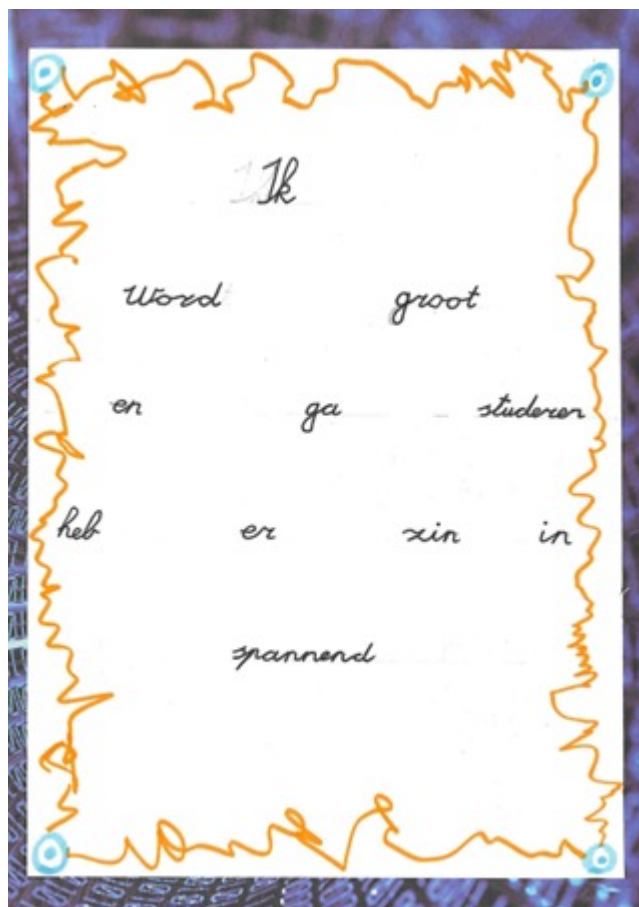 Ik
Word groot
en ga studeren
heb er zin in
spannend